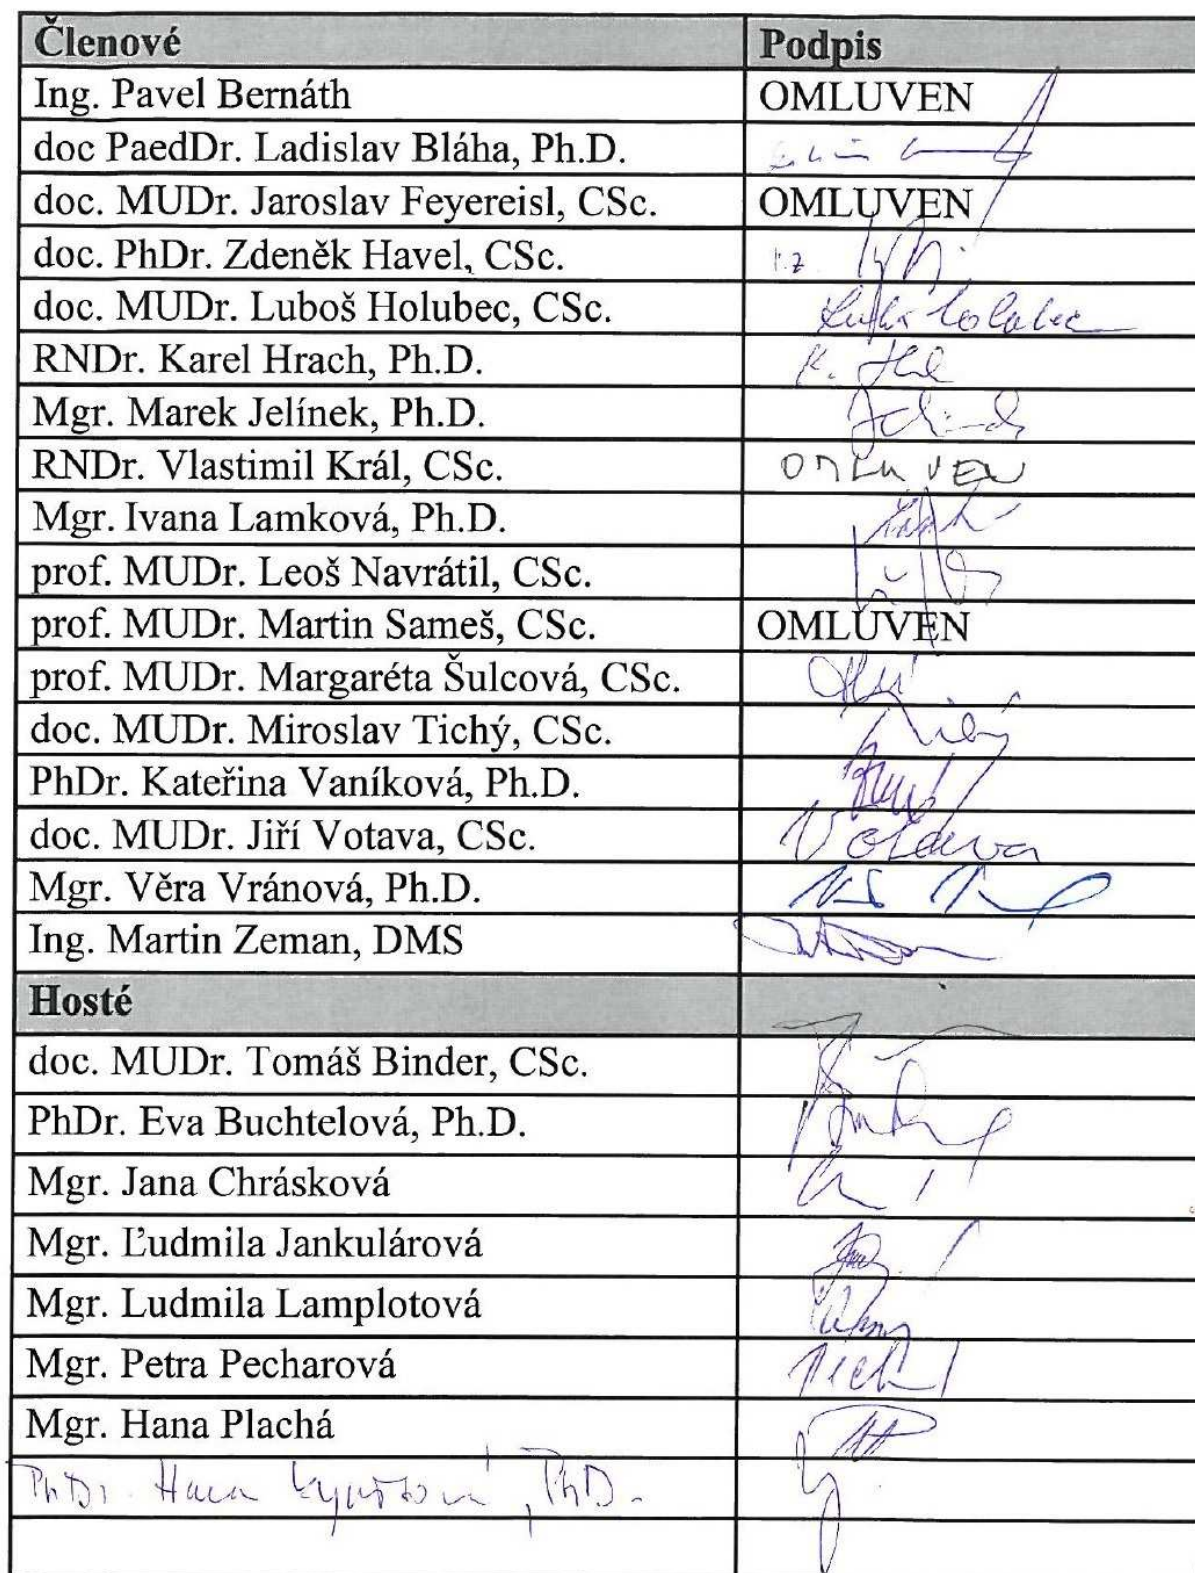 Členové Podpis
Ing. Pavel Bernáth OMLUVEN
doc PaedDr. Ladislav Bláha, Ph.D.
doc. MUDr. Jaroslav Feyereisl, CSc. OMLUVEN
doc. PhDr. Zdeněk Havel, CSc.
doc. MUDr. Luboš Holubec, CSc.
RNDr. Karel Hrach, Ph.D. K.
Mgr. Marek Jelínek, Ph.D.
RNDr. Vlastimil Král, CSc. OMLUVEN
Mgr. Ivana Lamková, Ph.D.
prof. MUDr. Leoš Navrátil, CSc.
prof. MUDr. Martin Sameš, CSc. OMLUVEN
prof. MUDr. Margaréta Šulcová, CSc.
doc. MUDr. Miroslav Tichý, CSc.
PhDr. Kateřina Vaníková, Ph.D.
doc. MUDr. Jiří Votava, CSc. Votava
Mgr. Věra Vránová, Ph.D.
Ing. Martin Zeman, DMS
Hosté
doc. MUDr. Tomáš Binder, CSc.
PhDr. Eva Buchtelová, Ph.D.
Mgr. Jana Chrásková
Mgr. Ľudmila Jankulárová
Mgr. Ludmila Lamplotová
Mgr. Petra Pecharová
Mgr. Hana Plachá
PhDr. Hana , PhD.